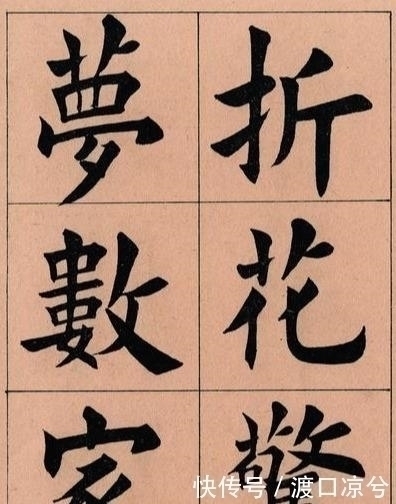 折花
夢數家
快传号 / 渡口凉兮